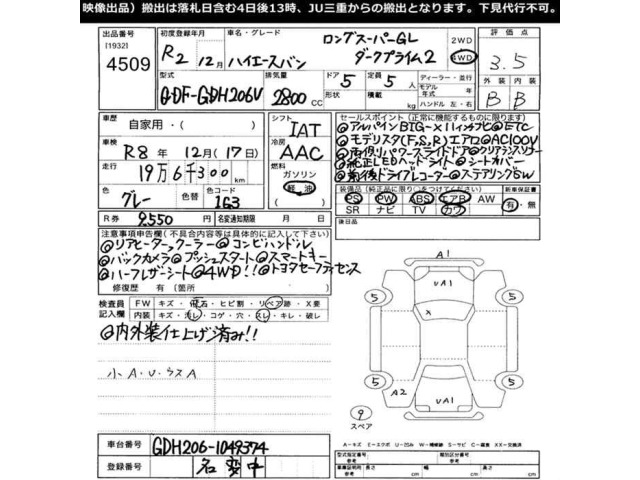 映像出品）搬出は落札日含む4日後13時、JU三重からの搬出となります。下見代行不可。
出品番号 初度登録年月 車名・グレード ロングスーパーGL 2WD 評価点
[1932] R2年12月 ハイエースバン ダークプライム2 4WD 3.5
4509 型式 排気量 ドア 5 定員 5人 ディーラー・並行 外装 内装
QDF-GDH206V 2800CC 形状 積載 kg モデル年式 年 B B
ハンドル 左・右
車歴 自家用・( ) シフト IAT セールスポイント（正常に機能するものに限ります）
◎アルパインBIG-X11インチナビ◎ETC
車検 R8年12月(17日) 冷房 AAC ◎モデリスタ(F,S,R)エアロ◎AC100V
◎両側パワースライドドア◎クリアランスソナー
走行 19万6千300km 燃料 ガソリン 軽油 ◎純正LEDヘッドライト◎シートカバー
◎前後ドライブレコーダー◎ステアリングSW
色 グレー 色替 色コード 1G3 装備品（純正品に限り○をつけてください） 新車保証書
PS PW ABS エアB AW 有・無
R券 9,550円 名変通知期限 月 日 SR ナビ TV カワ
注意事項申告欄（不具合内容等は具体的に記入して下さい） 後日品
◎リアヒーター,クーラー◎コンビハンドル
◎バックカメラ◎プッシュスタート◎スマートキー
◎ハーフレザーシート◎4WD!!◎トヨタセーフティセンス
修復歴 有（箇所
検査員記入欄 FW キズ・飛石・ヒビ割・リペア跡・X要
内装 キズ・汚レ・コゲ・穴・スレ・キレ・破レ
◎内外装仕上げ済み!!
小A.U.ウスA
A1
UA1
5 X 5
5 5
A2 UA1
9
スペア
A=キズ E=エクボ U=凹み W=補修跡 S=サビ C=腐食 XX=交換済
車台番号 GDH206-1049374
登録番号 名変中
型式指定番号 類別区分番号
参考 参考
車庫証明用 長さ cm 幅 cm 高さ cm